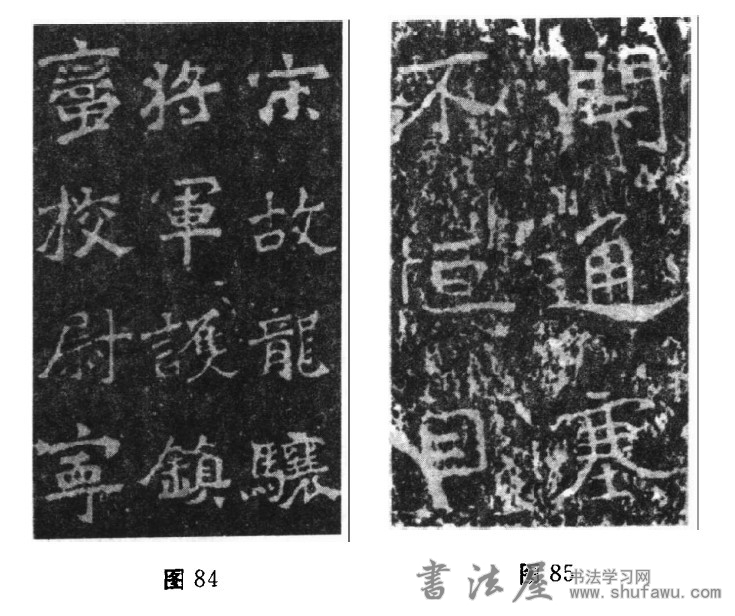 宋故龍驤
將軍護鎮
蠻校尉寧
图 84
閉通塞
不恒自
图 85
书法屋 书法学习网
www.shufawu.com